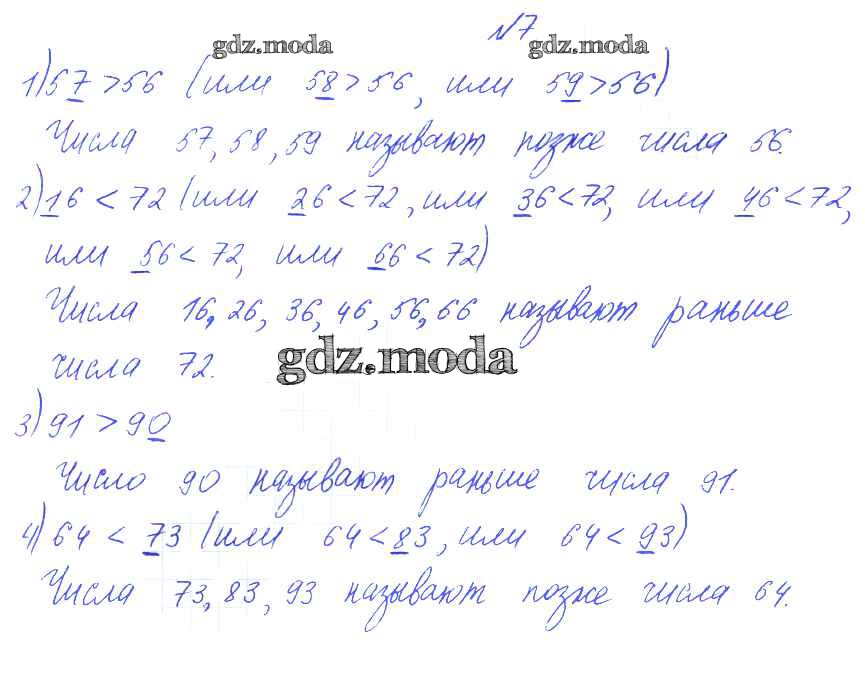 №7
gdz.moda gdz.moda
1) 57 > 56 (или 58 > 56, или 59 > 56)
Числа 57, 58, 59 называют позже числа 56.
2) 16 < 72 (или 26 < 72, или 36 < 72, или 46 < 72,
или 56 < 72, или 66 < 72)
Числа 16, 26, 36, 46, 56, 66 называют раньше
числа 72.
gdz.moda
3) 91 > 90
Число 90 называют раньше числа 91.
4) 64 < 73 (или 64 < 83, или 64 < 93)
Числа 73, 83, 93 называют позже числа 64.